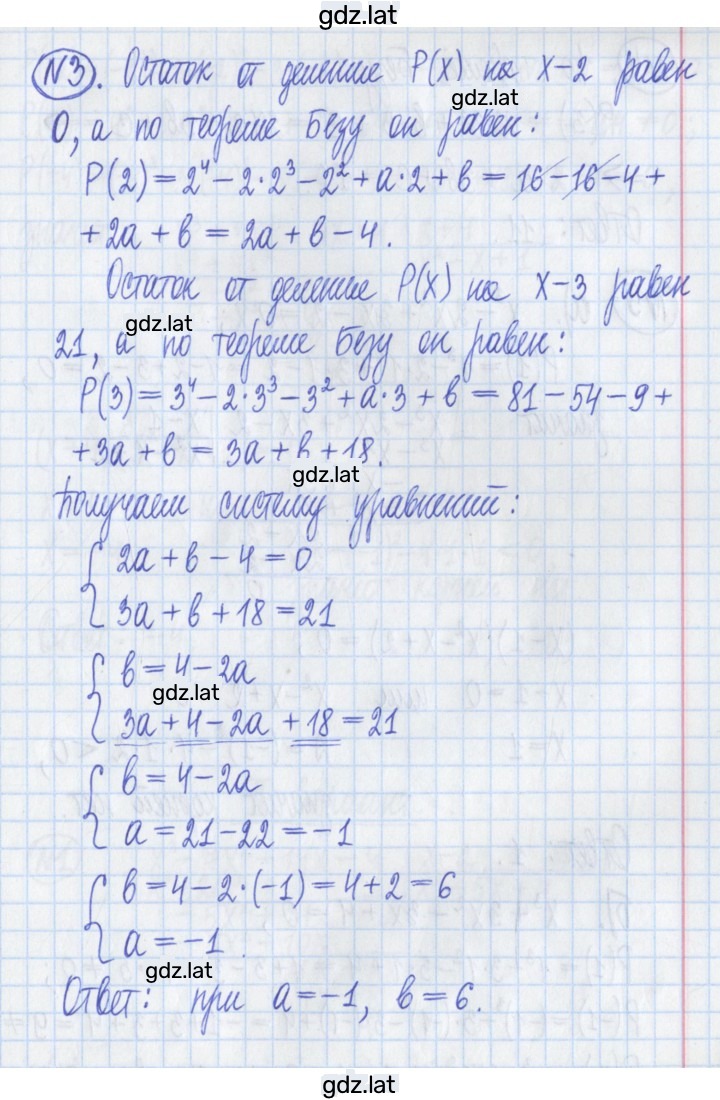 gdz.lat
N3. Остаток от деление P(x) на x-2 равен
gdz.lat
0, а по теореме Безу он равен:
P(2) = 2⁴ - 2·2³ - 2² + a·2 + b = 16 - 16 - 4 +
+ 2a + b = 2a + b - 4.
Остаток от деление P(x) на x-3 равен
gdz.lat
21, а по теореме Безу он равен:
P(3) = 3⁴ - 2·3³ - 3² + a·3 + b = 81 - 54 - 9 +
+ 3a + b = 3a + b + 18.
gdz.lat
Получаем систему уравнений:
{ 2a + b - 4 = 0
3a + b + 18 = 21
{ b = 4 - 2a
gdz.lat
3a + 4 - 2a + 18 = 21
{ b = 4 - 2a
a = 21 - 22 = -1
{ b = 4 - 2·(-1) = 4 + 2 = 6
a = -1.
gdz.lat
Ответ: при a = -1, b = 6.
gdz.lat